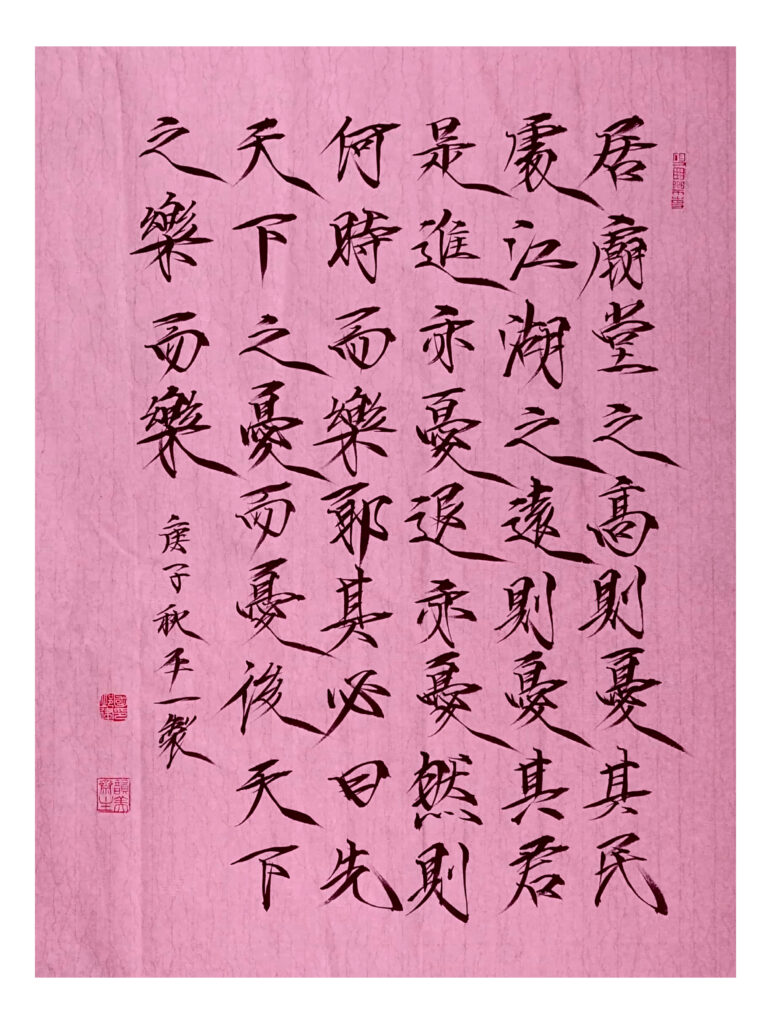 居廟堂之高則憂其民
處江湖之遠則憂其君
是進亦憂退亦憂然則
何時而樂耶其必曰先
天下之憂而憂後天下
之樂而樂
庚子秋平一製